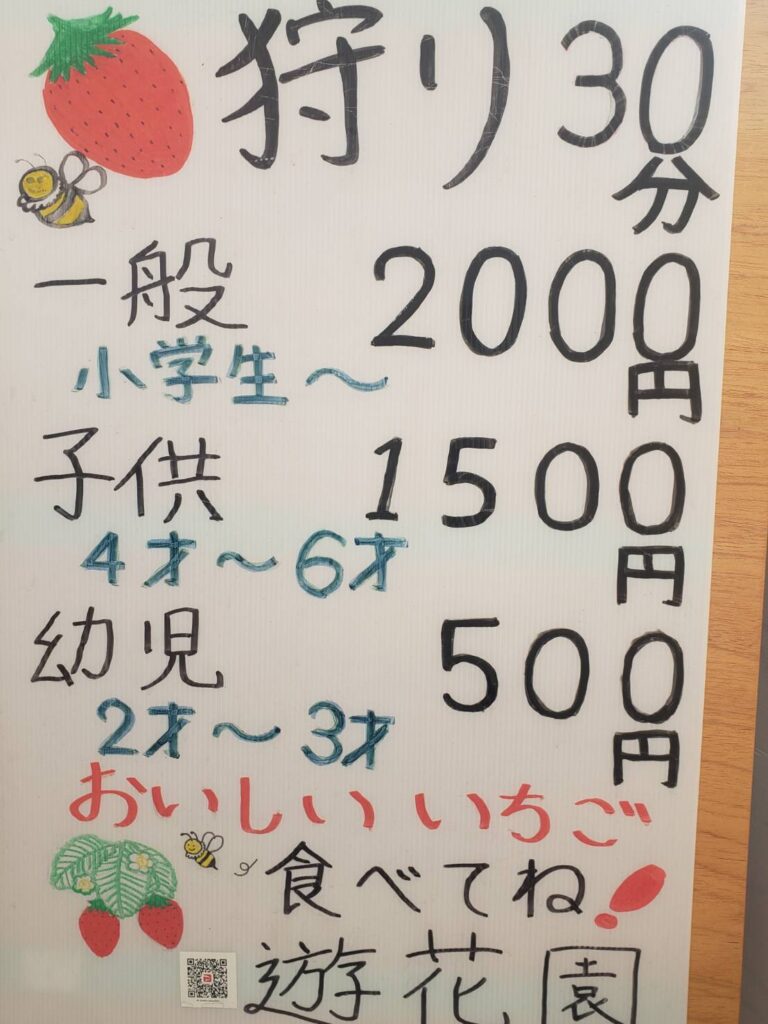 狩り 30分
一般 2000円
小学生〜
子供 1500円
4才〜6才
幼児 500円
2才〜3才
おいしい いちご
食べてね!
遊花園